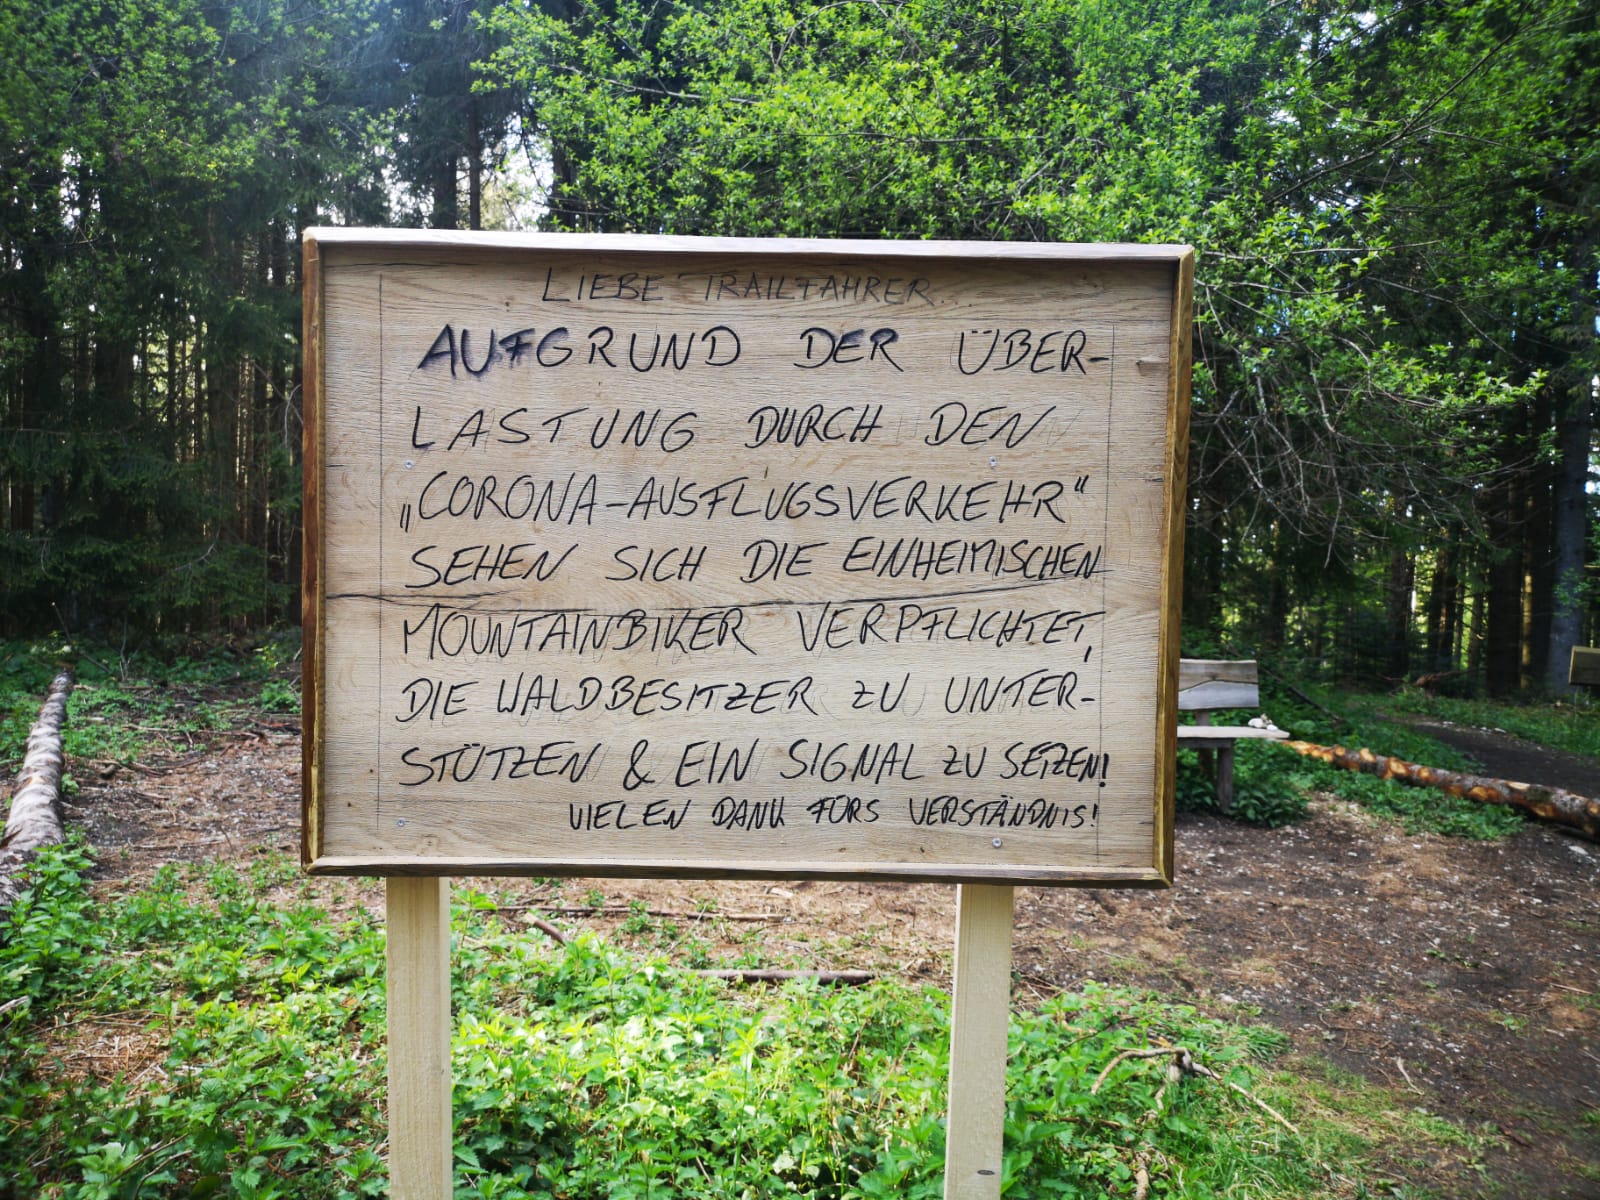 LIEBE TRAILFAHRER...
AUFGRUND DER ÜBER-
LASTUNG DURCH DEN
„CORONA-AUSFLUGSVERKEHR“
SEHEN SICH DIE EINHEIMISCHEN
MOUNTAINBIKER VERPFLICHTET,
DIE WALDBESITZER ZU UNTER-
STÜTZEN & EIN SIGNAL ZU SETZEN!
VIELEN DANK FÜRS VERSTÄNDNIS!